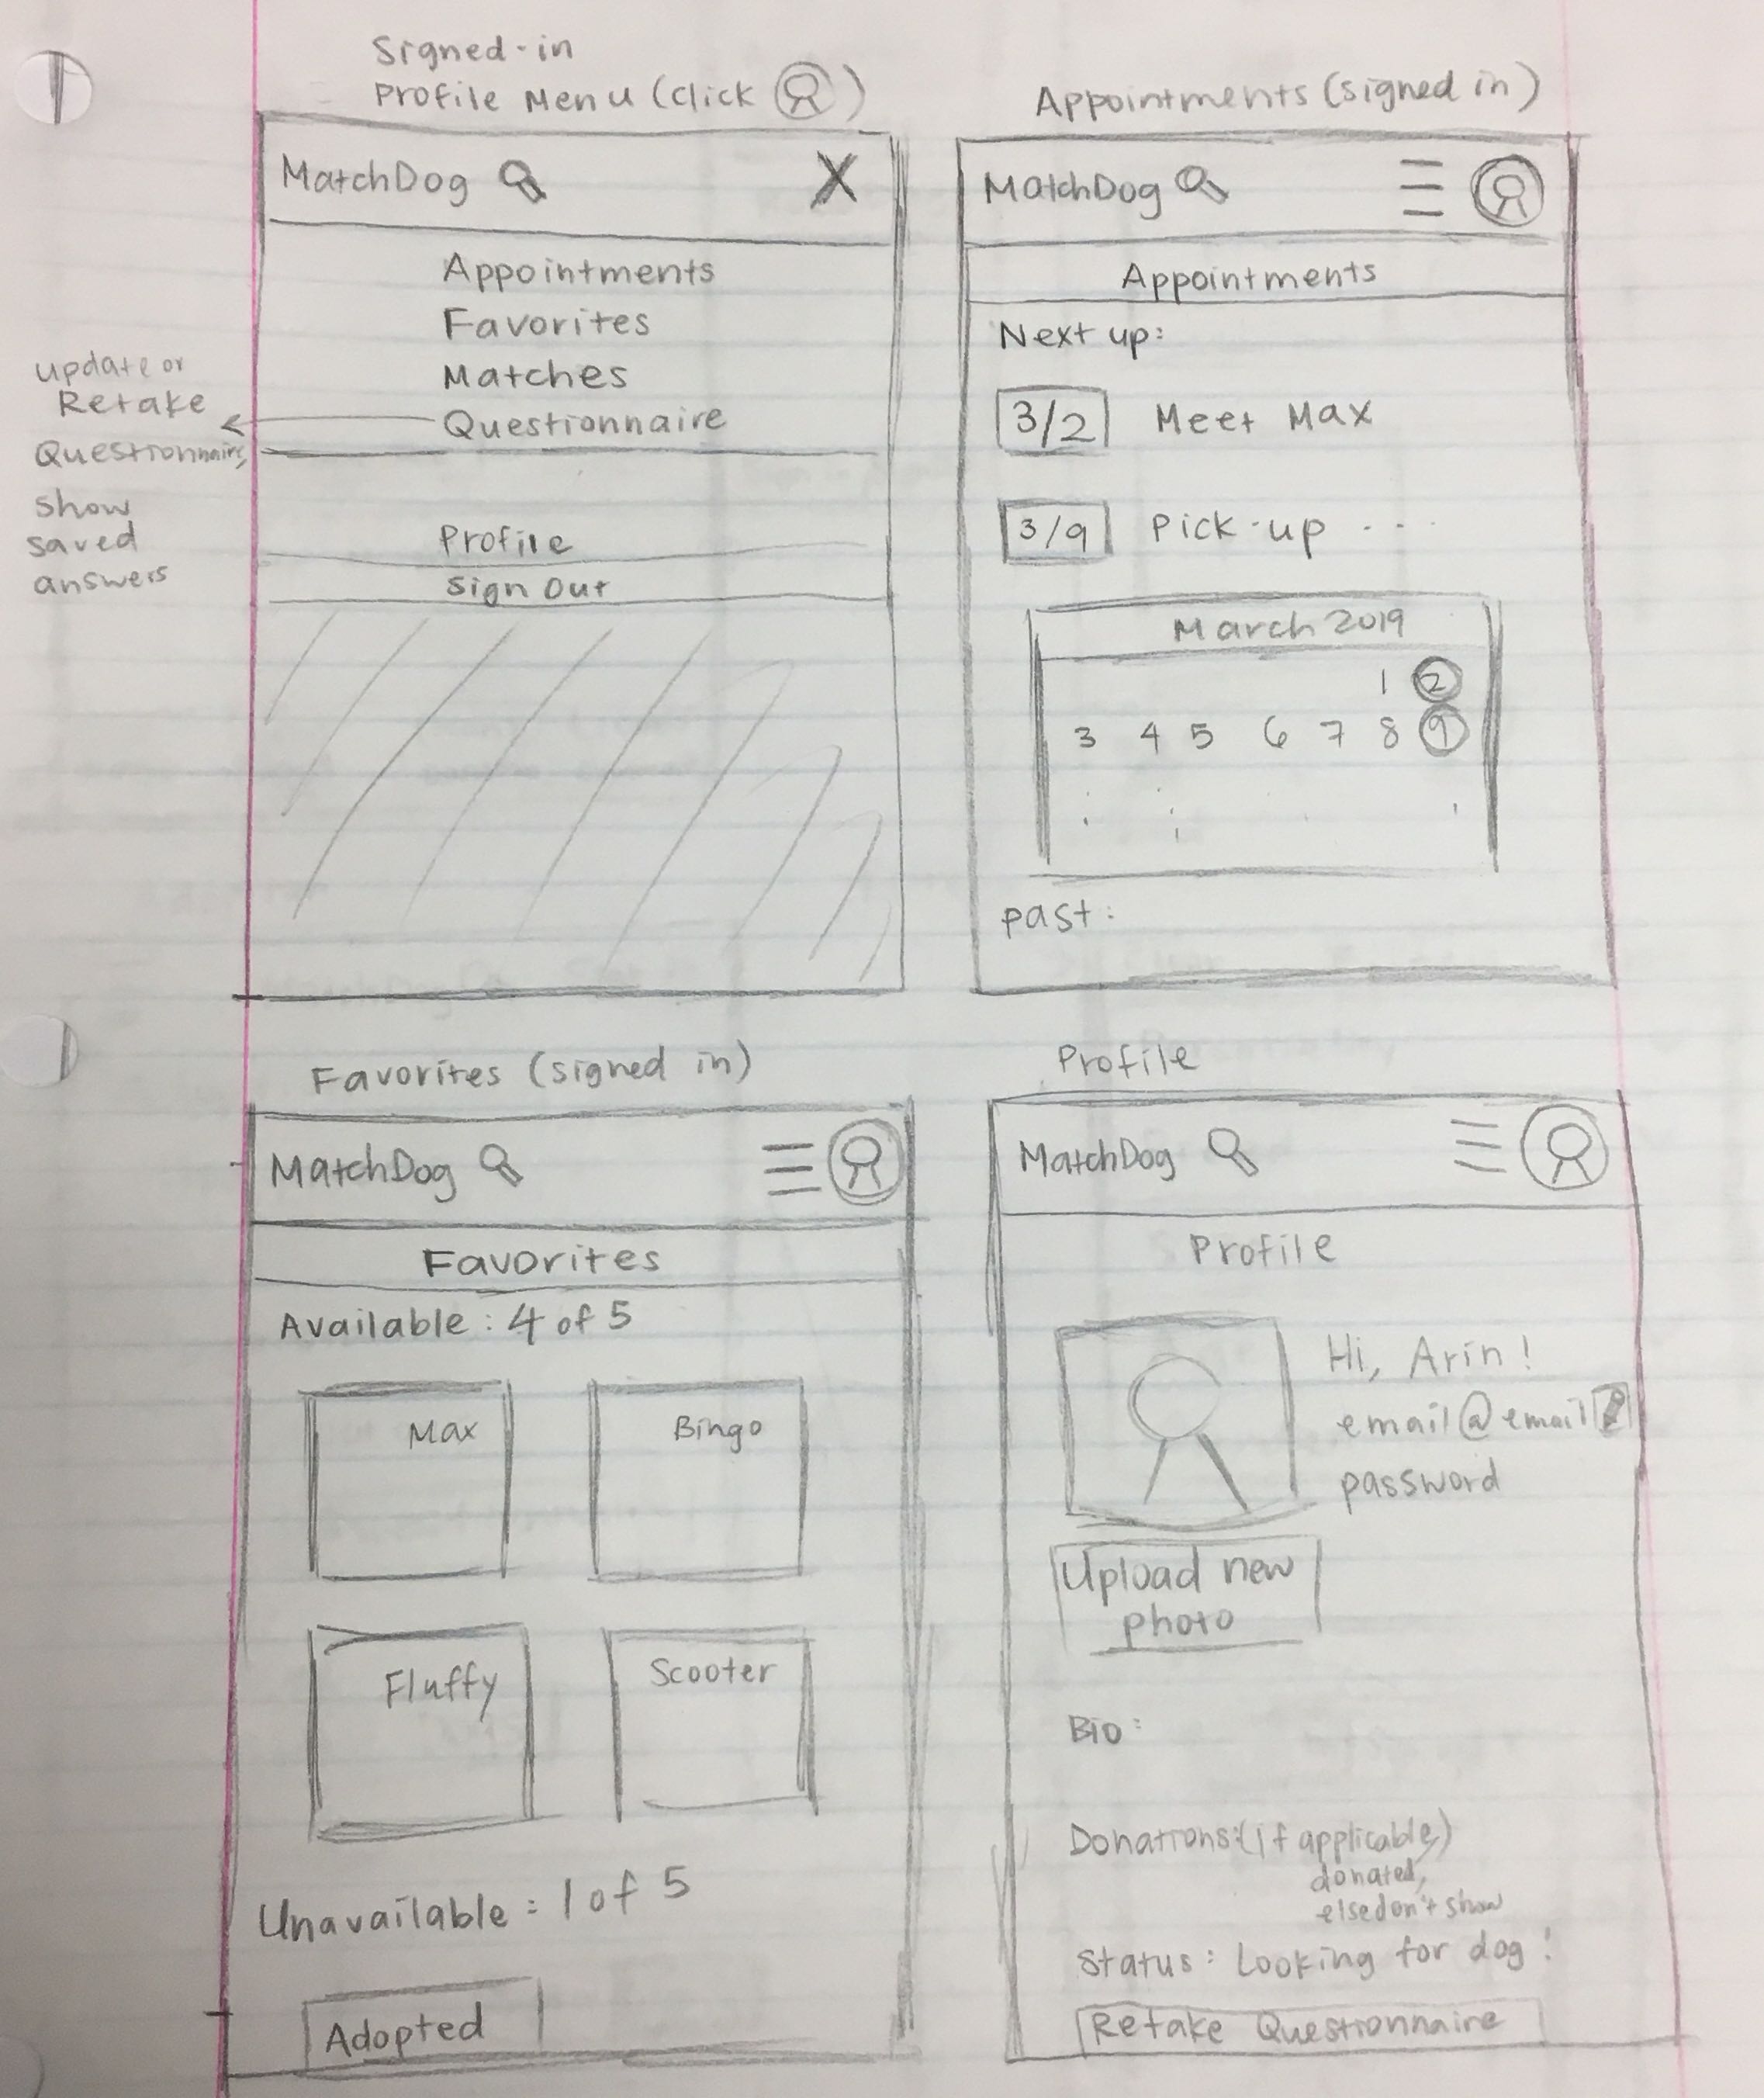 Signed-in
Profile Menu (click )
MatchDog
X
Appointments
Favorites
Matches
Questionnaire
Profile
Sign Out
update or
Retake
Questionnaire,
show
saved
answers
Appointments (signed in)
MatchDog
Appointments
Next up:
3/2 Meet Max
3/9 Pick-up ...
March 2019
1 2
3 4 5 6 7 8 9
past:
Favorites (signed in)
MatchDog
Favorites
Available: 4 of 5
Max Bingo
Fluffy Scooter
Unavailable: 1 of 5
Adopted
Profile
MatchDog
Profile
Hi, Arin!
email@email
password
Upload new
photo
Bio:
Donations: (if applicable)
donated,
else don't show
Status: Looking for dog!
Retake Questionnaire